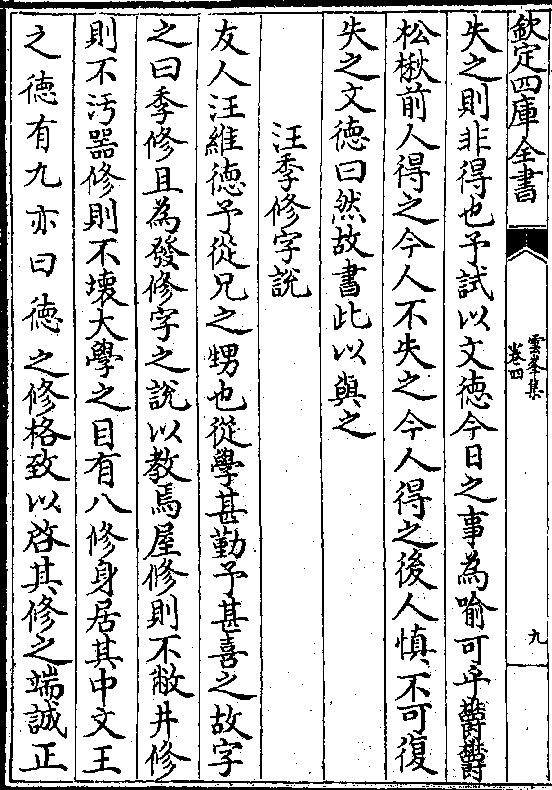 欽定四庫全書
雲峯集
卷四
九
失之則非得也予試以文德今日之事為喻可乎欝欝
松楸前人得之今人不失之今人得之後人慎不可復
失之文德曰然故書此以與之
汪季修字説
友人汪維德予從兄之甥也從學甚勤予甚喜之故字
之曰季修且為發修字之說以教焉屋修則不敝井修
則不汚器修則不壞大學之目有八修身居其中文王
之德有九亦曰德之修格致以啓其修之端誠正